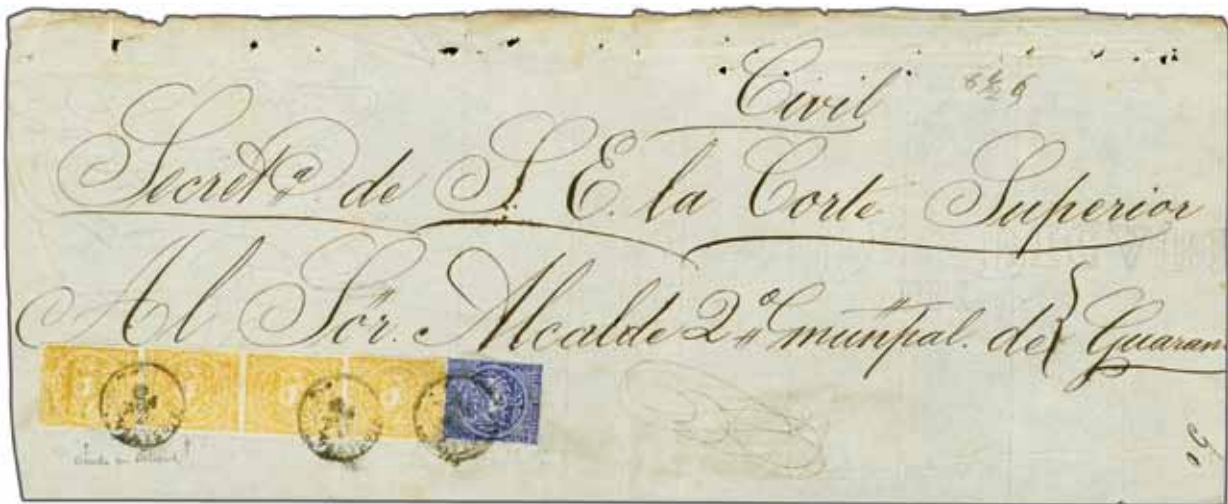 Civil
Secret.ª de S. E. la Corte Superior
Al Sör. Alcalde 2º munpal. de } Guaran